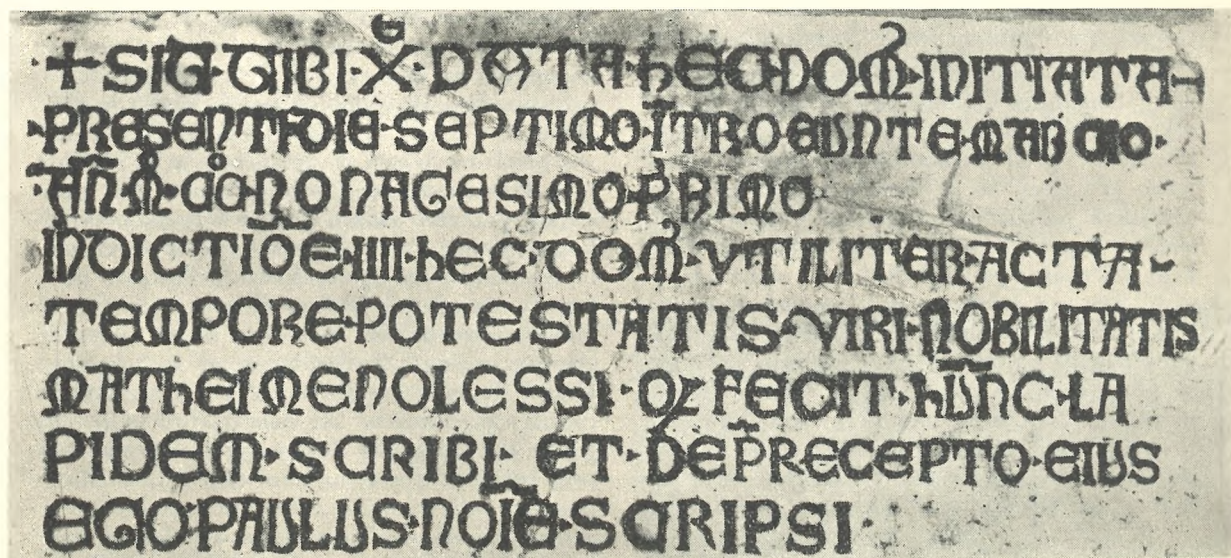 + SIC · TIBI · Xͤ · DATA · hEC · DOM᾽ · INITIATA –
· PRESENTI · DIE · SEPTIMO · ĪTROEUNTE · MARCIO ·
· AÑ · Mͦ · CCͦ · NONAGESIMO · PRIMO
INDICTIOE · IIII · hEC · DOM᾽ · VTILITER · ACTA -
TEMPORE · POTESTATIS · VIRI · NOBILITATIS
MATHEI MENOLESSI · Q FECIT · hUNC · LA
PIDEM · SCRIBI · ET · DE PRECEPTO · EIUS
EGO · PAULUS · NOIE · SCRIPSI ·